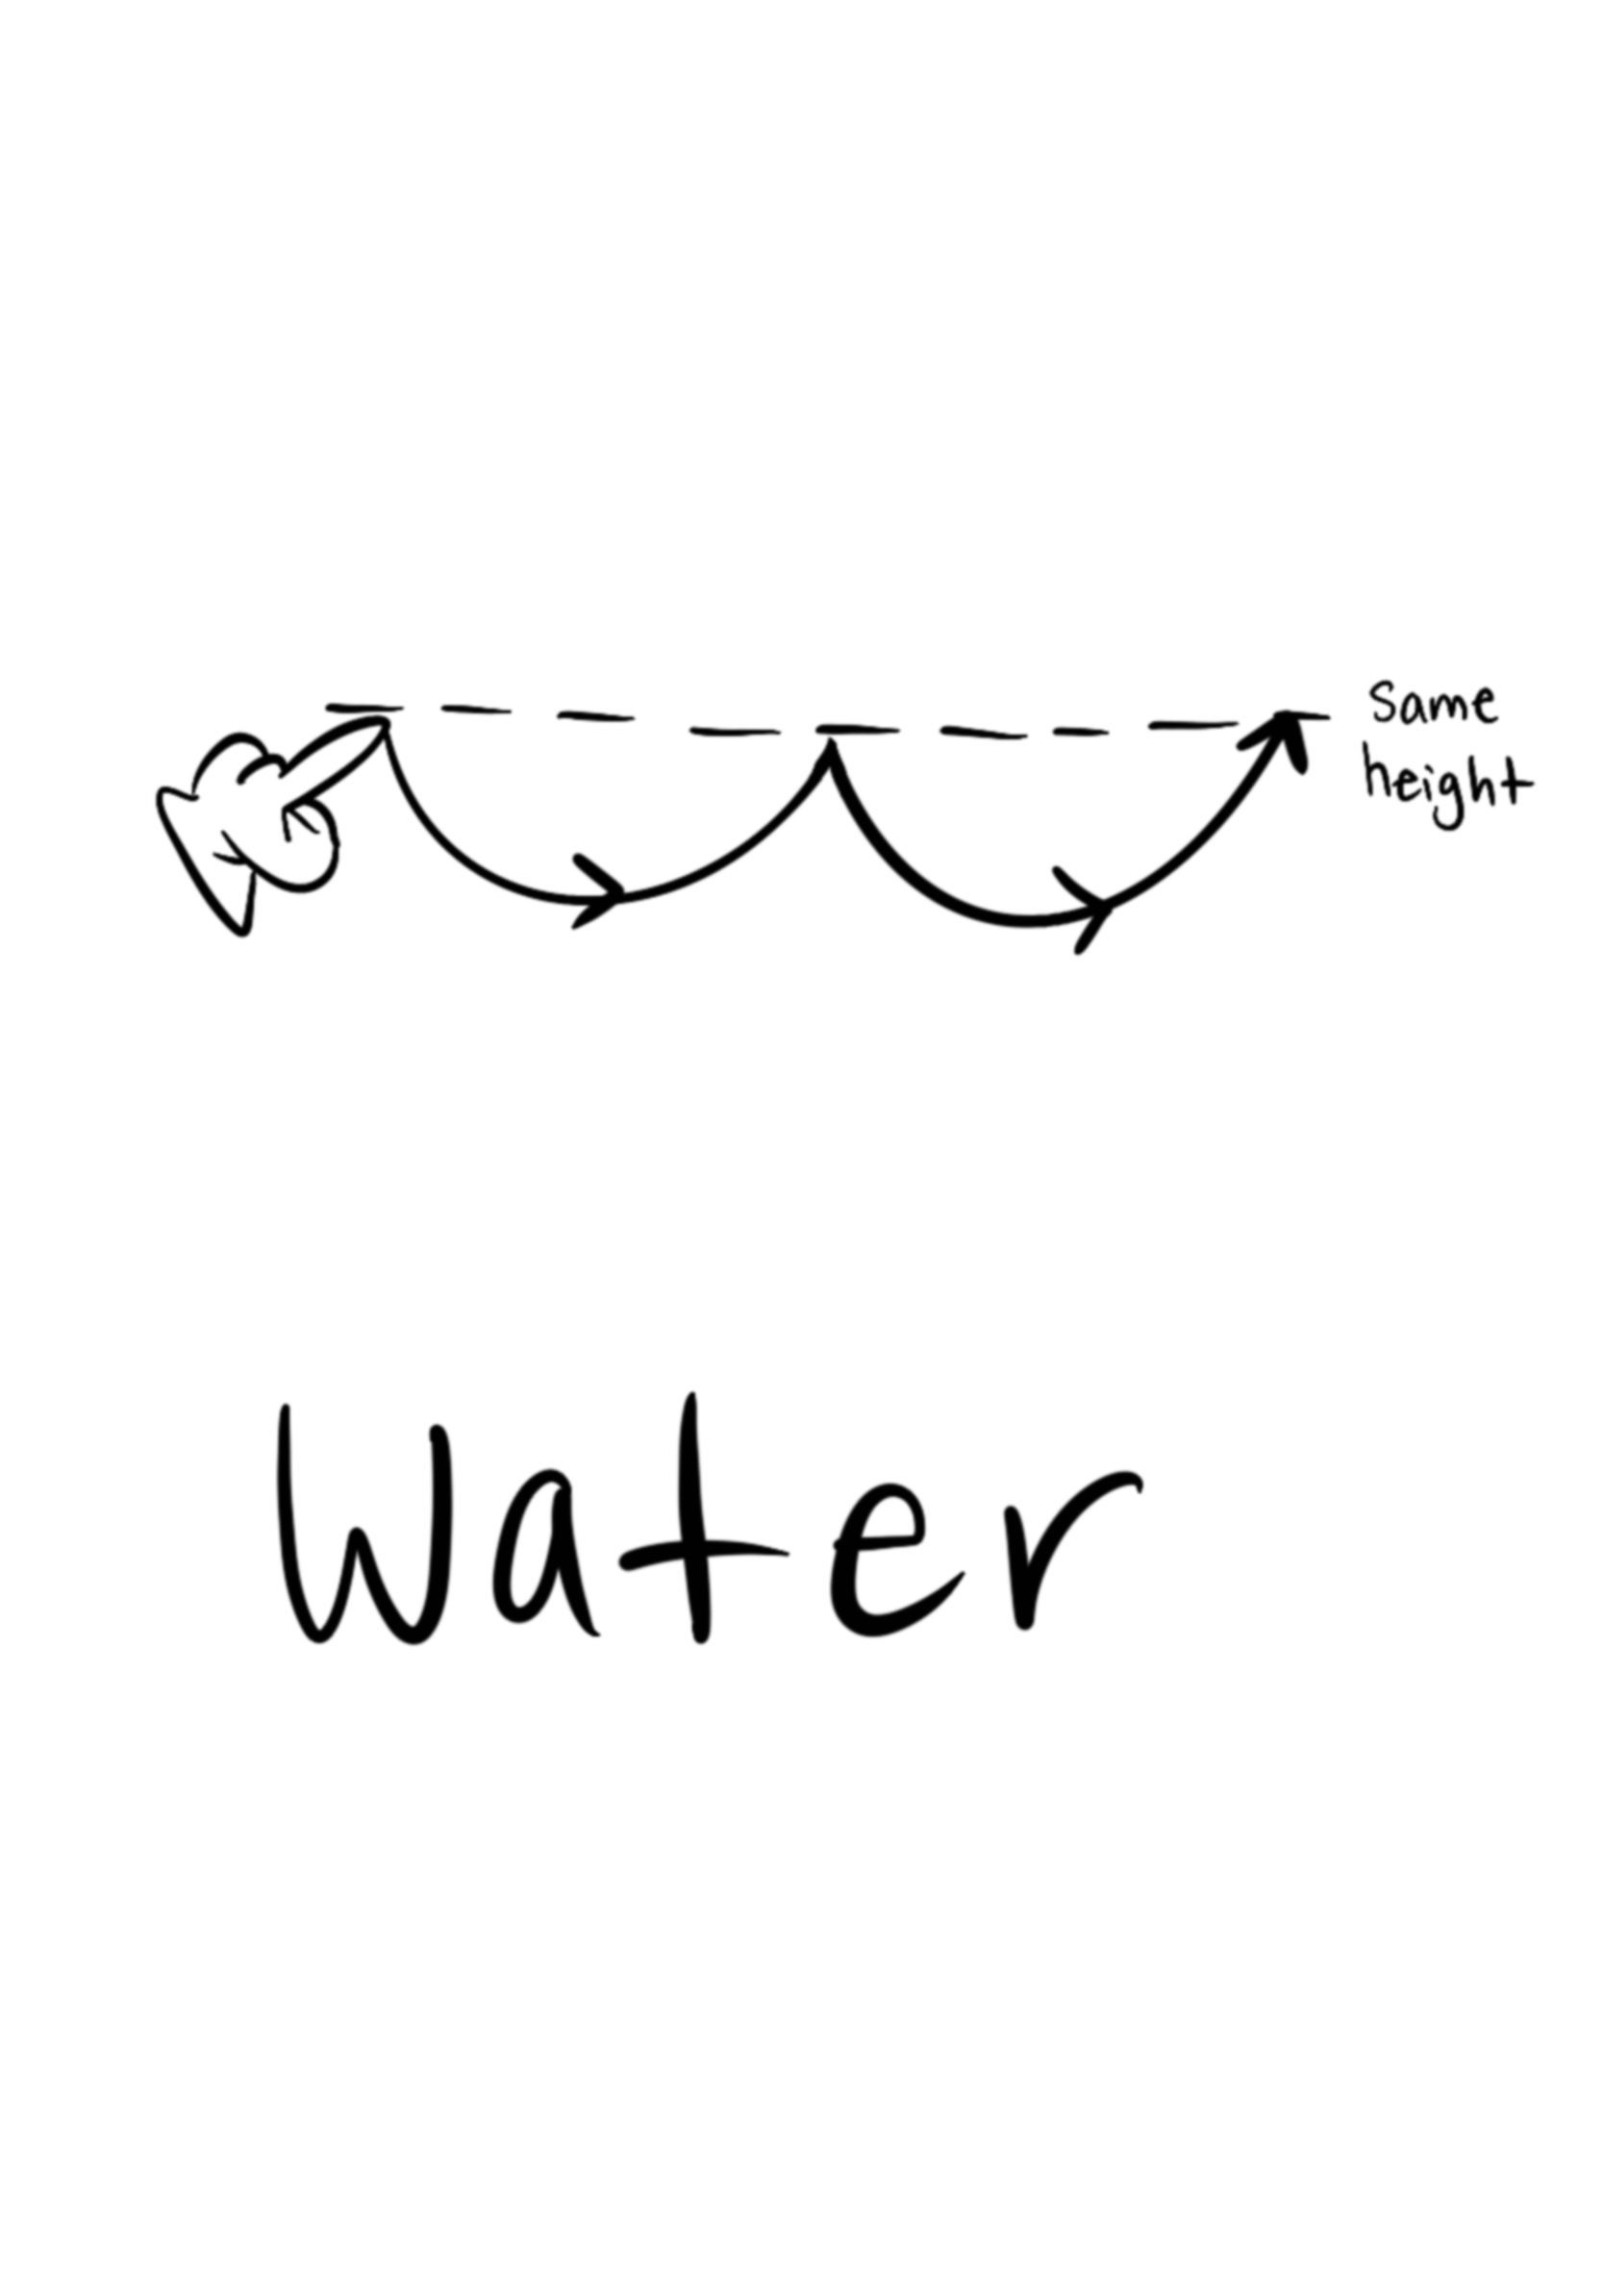 Same
height
Water